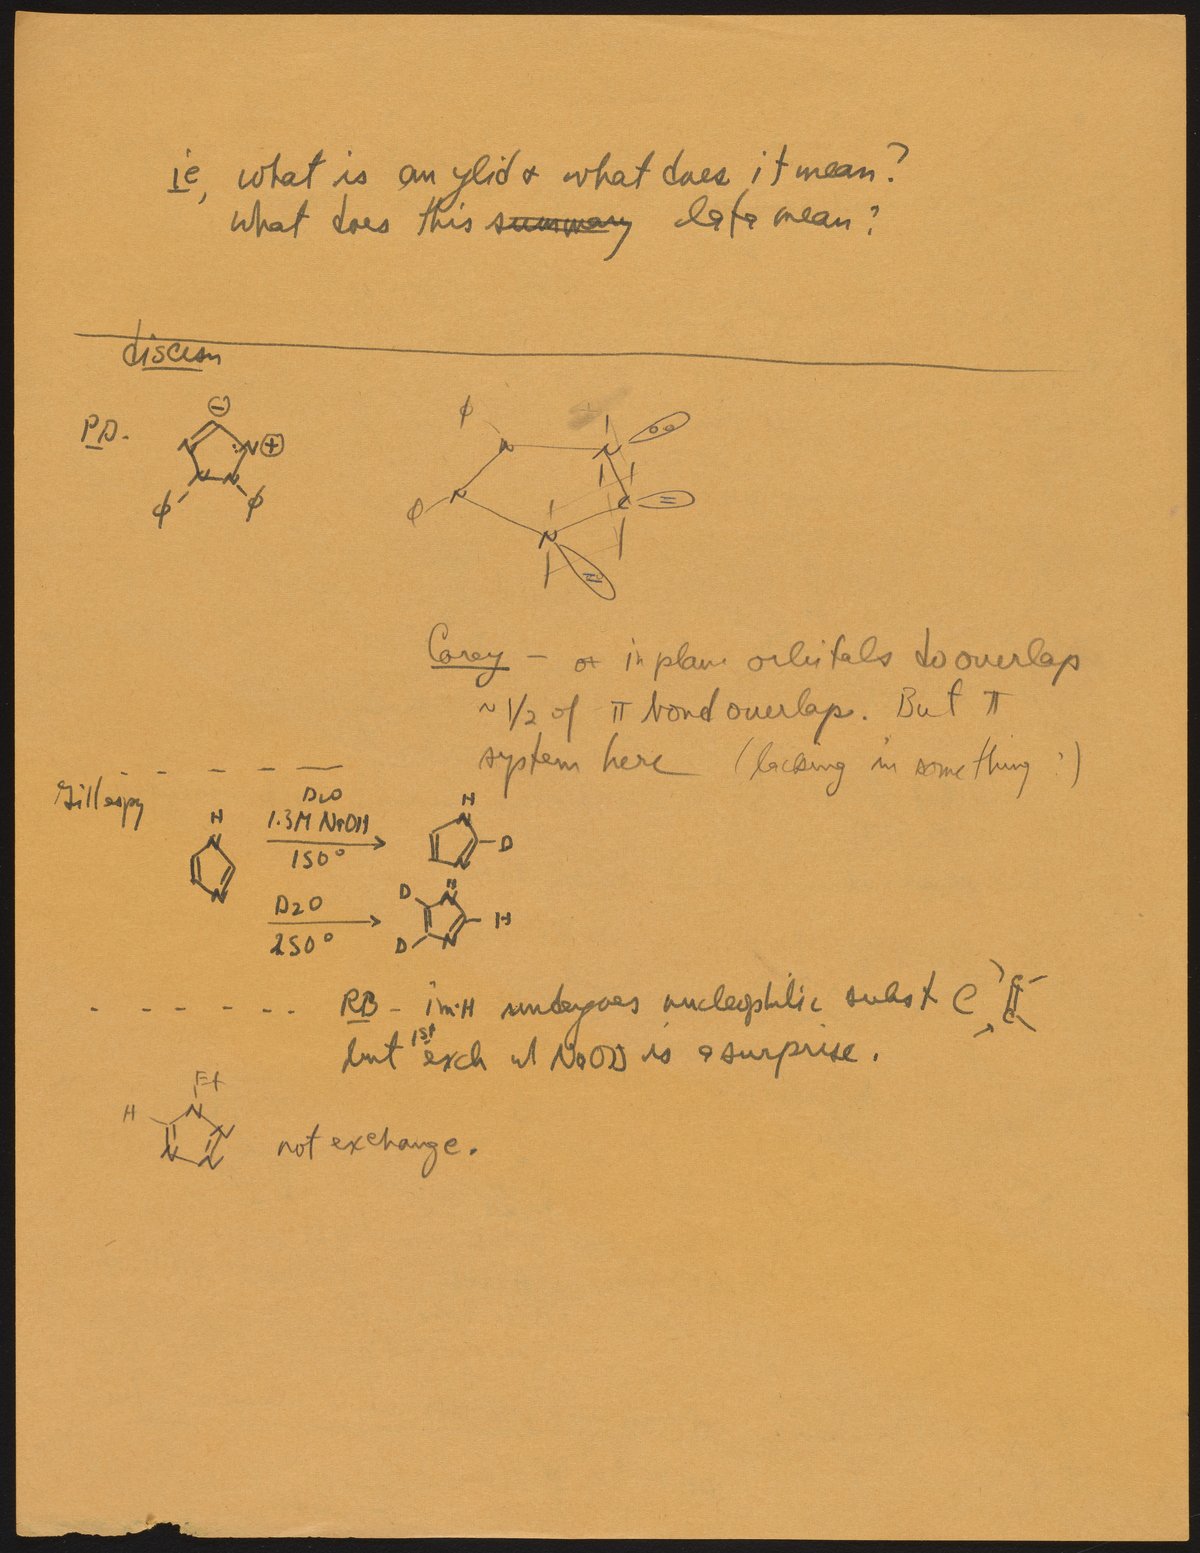 ie, what is an ylid & what does it mean?
what does this summary data mean?
discusn
P.D. ⊖
N N ⊕
N N
φ φ
φ
N N
φ N C
N
Corey – σ in plane orbitals do overlap
~ 1/2 of π bond overlap. But π
system here (lacking in something?)
Gillespy
H N N
D2O
1.3M NaOH
150°
H N N D
D2O
250°
D H N N H D
RB – im·H undergoes nucleophilic subst C C C
but 1st exch w/ NaOD is a surprise.
Et
H N N N N not exchange.